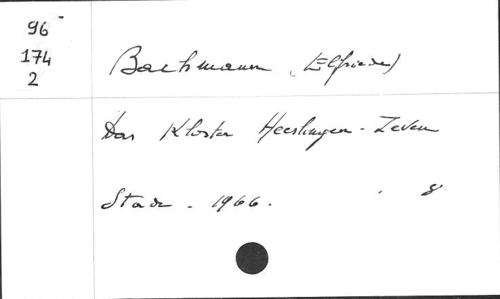 96
174
2
Bachmann (Elfriede)
Das Kloster Heeslingen - Zeven
Stade - 1966.
8